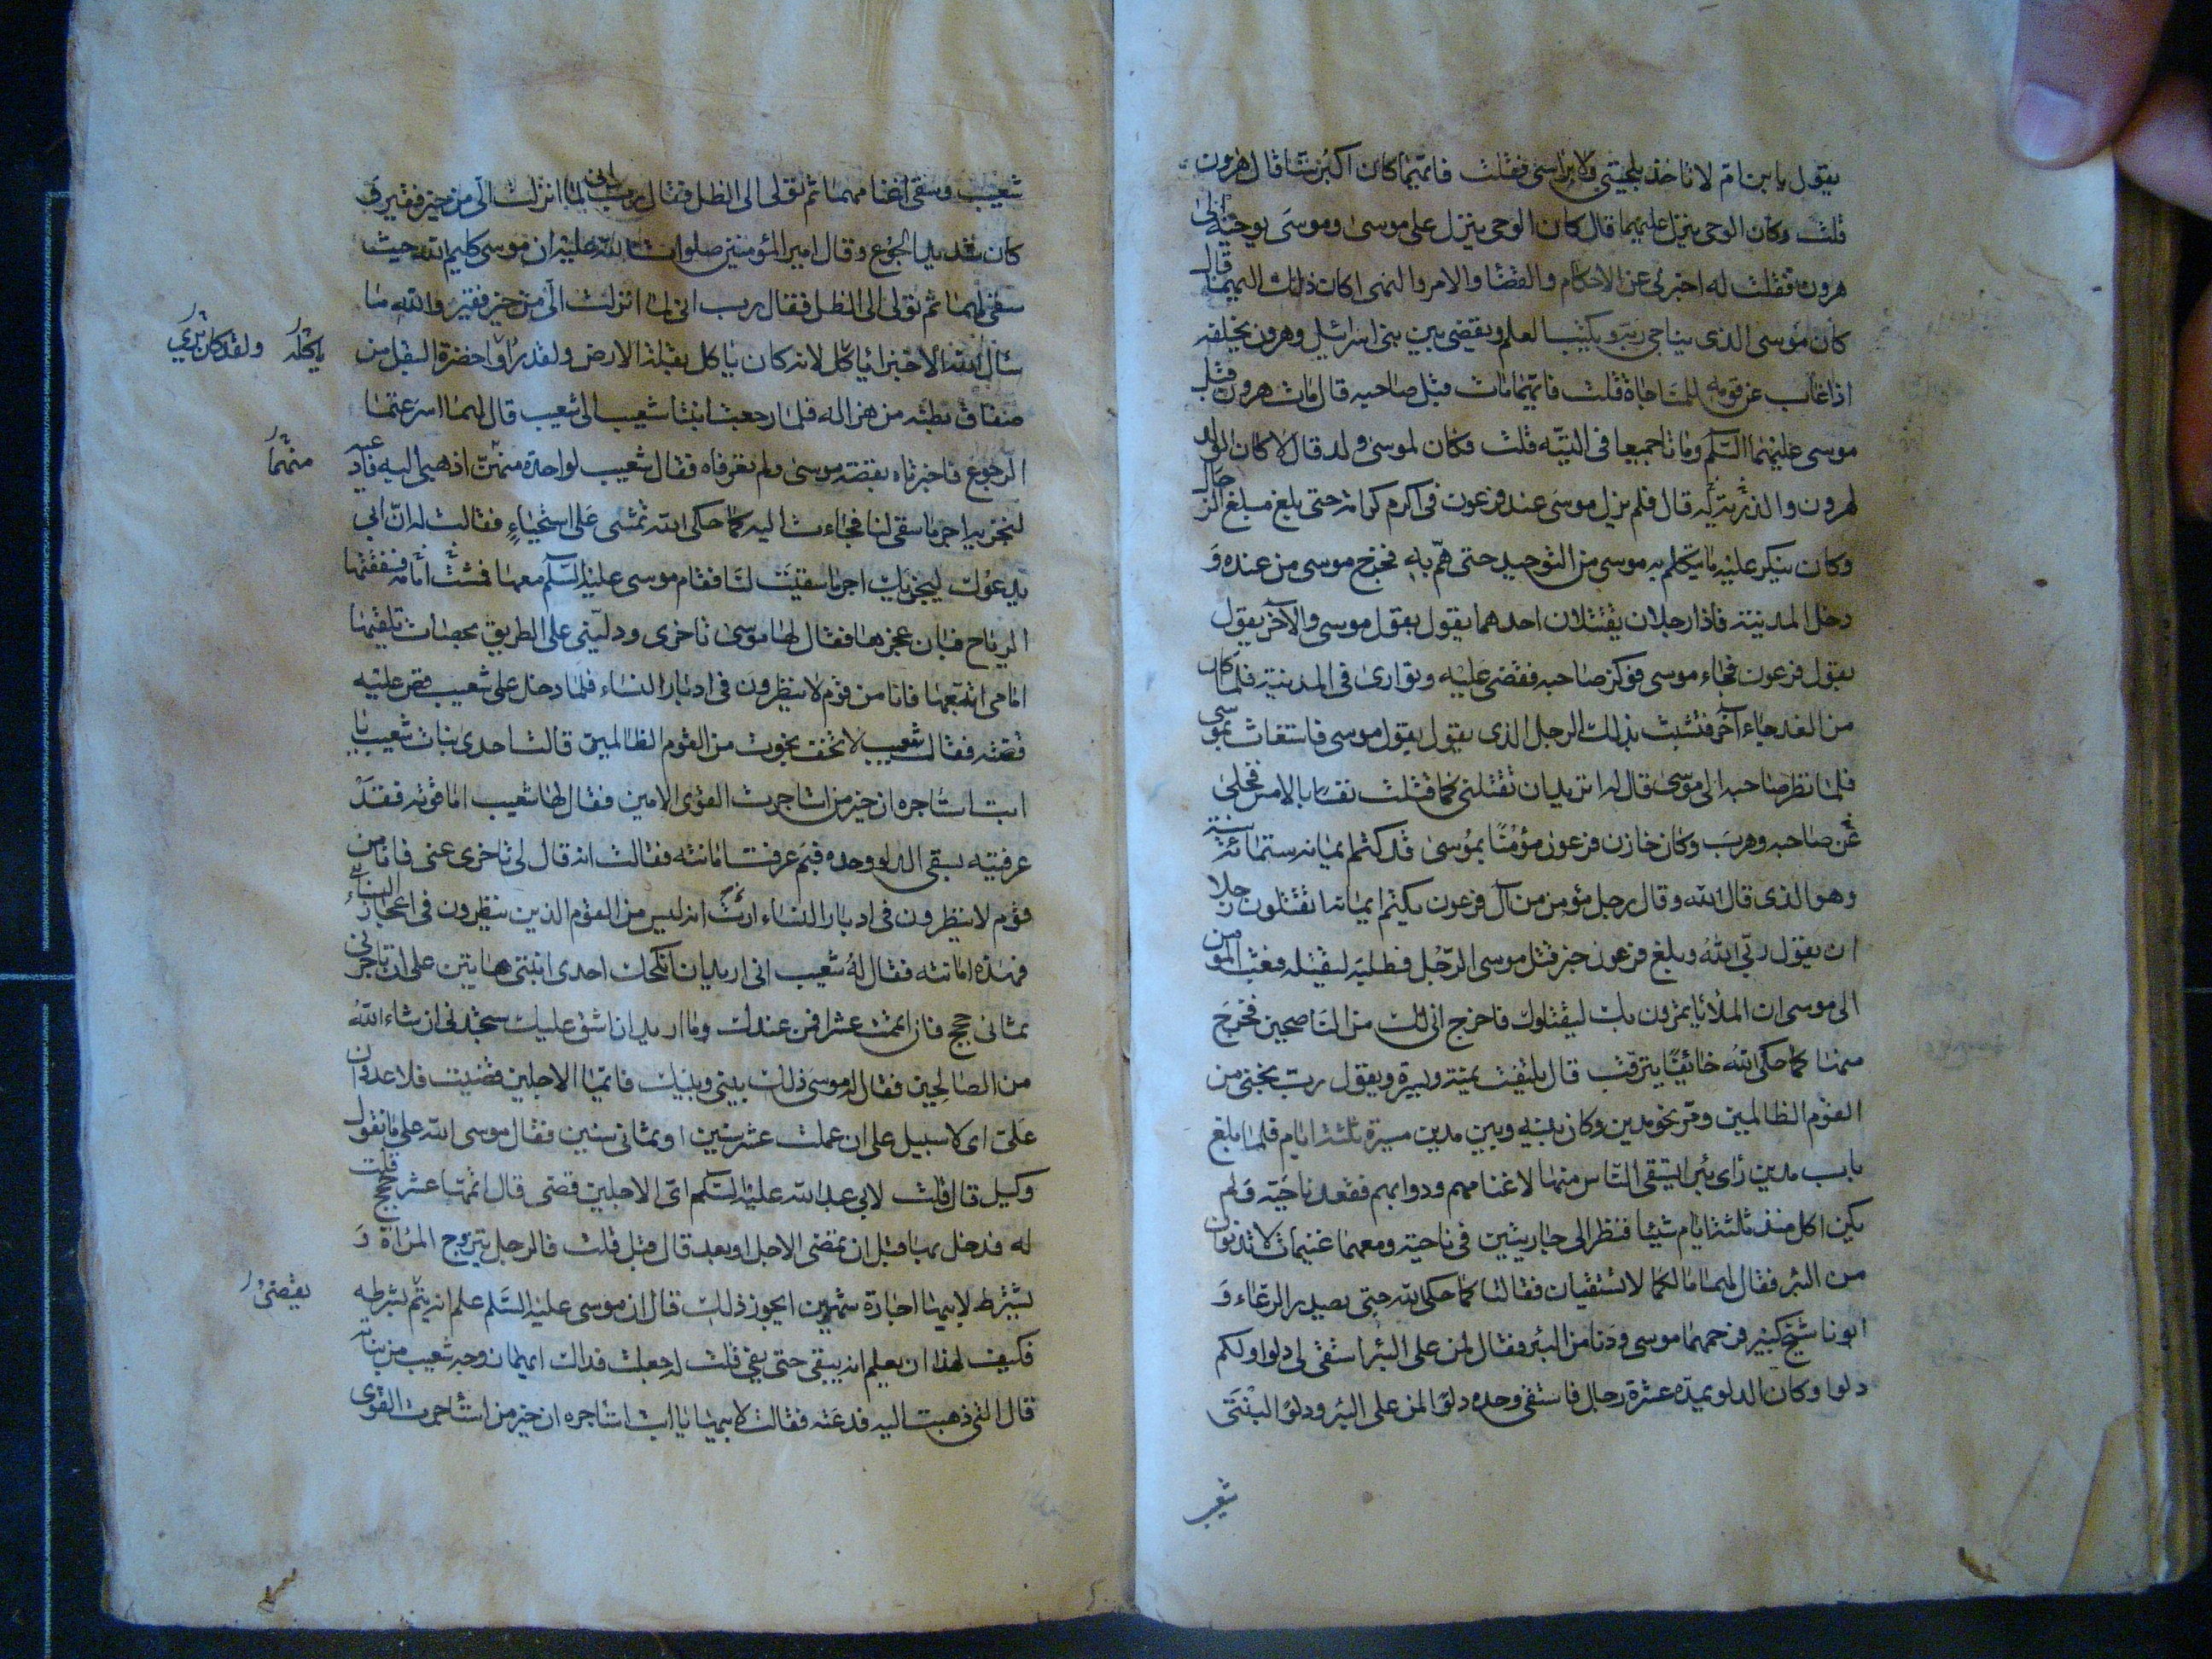 يقول يابن ام لا تاخذ بلحيتي ولا براسي فقلت فايهما كان اكبر سنا قال هرون
قلت وكان الوحي ينزل عليهما قال كان الوحي ينزل على موسى وموسى يوحيه الى
هرون فقلت له اخبرني عن الاحكام والقضا والامر والنهي اكان ذلك اليهما قال
كان موسى الذي يناجي ربه ويكتب العلم ويقضي بين بني اسرائيل وهرون يخلفه
اذا غاب عن قومه للمناجاة قلت فايهما مات قبل صاحبه قال مات هرون قبل
موسى عليهما السلم وماتا جميعا في التيه قلت فكان لموسى ولد قال لا كان الولد
لهرون والذرية له قال فلم يزل موسى عند فرعون في اكرم كرامة حتى بلغ مبلغ الرجال
وكان ينكر عليه ما يتكلم به موسى من التوحيد حتى هم به فخرج موسى من عنده و
دخل المدينة فاذا رجلان يقتتلان احدهما يقول بقول موسى والآخر يقول
بقول فرعون فجاء موسى فوكز صاحبه فقضى عليه وتوارى في المدينة فلما كان
من الغد جاء آخر فتشبث بذلك الرجل الذي يقول بقول موسى فاستغاث بموسى
فلما نظر صاحبه الى موسى قال له اتريد ان تقتلني كما قتلت نفسا بالامس فخلى
عن صاحبه وهرب وكان خازن فرعون مؤمنا بموسى قد كتم ايمانه ستمائة سنة
وهو الذي قال الله وقال رجل مؤمن من آل فرعون يكتم ايمانه اتقتلون رجلا
ان يقول ربي الله وبلغ فرعون خبر قتل موسى الرجل فطلبه ليقتله فبعث المؤمن
الى موسى ان الملأ ياتمرون بك ليقتلوك فاخرج اني لك من الناصحين فخرج
منها كما حكى الله خائفا يترقب قال يلتفت يمنة ويسرة ويقول رب نجني من
القوم الظالمين ومر نحو مدين وكان بينه وبين مدين مسيرة ثلثة ايام فلما بلغ
باب مدين رأى بئرا يستقي الناس منها لاغنامهم ودوابهم فقعد ناحية ولم
يكن اكل منذ ثلثة ايام شيئا فنظر الى جاريتين في ناحية ومعهما غنيمات لا تدنوان
من البئر فقال لهما ما لكما لا تستقيان فقالتا كما حكى الله حتى يصدر الرعاء و
ابونا شيخ كبير فرحمهما موسى ودنا من البئر فقال لمن على البئر استقي لي دلوا ولكم
دلوا وكان الدلو يمده عشرة رجال فاستقى وحده دلوا لمن على البئر ودلو البنتي
شعيب
شعيب وسقى اغنامهما ثم تولى الى الظل فقال رب اني لما انزلت الي من خير فقير و
كان شديد الجوع وقال امير المؤمنين صلوات الله عليه ان موسى كليم الله حيث
سقى لهما ثم تولى الى الظل فقال رب اني لما انزلت الي من خير فقير والله ما
سأل الله الا خبزا ياكل لانه كان ياكل بقلة الارض ولقد رأوا خضرة البقل من
ياكله ولقد كان يرى
صفاق بطنه من هزاله فلما رجعتا ابنتا شعيب الى شعيب قال لهما اسرعتما
الرجوع فاخبرتاه بقصة موسى ولم تعرفاه فقال شعيب لواحدة منهن اذهبي اليه فادعيه
منهما
لنجزيه اجر ما سقى لنا فجاءت اليه كما حكى الله تمشي على استحياء فقالت له ان ابي
يدعوك ليجزيك اجر ما سقيت لنا فقام موسى عليه السلم معها فمشت امامه فسفقتها
الرياح فبان عجزها فقال لها موسى تاخري ودليني على الطريق بحصاة تلقيها
امامي اتبعها فانا من قوم لا ينظرون في ادبار النساء فلما دخل على شعيب قص عليه
قصته فقال شعيب لا تخف نجوت من القوم الظالمين قالت احدى بنات شعيب يا
ابت استاجره ان خير من استاجرت القوي الامين فقال لها شعيب اما قوته فقد
عرفتيه بسقي الدلو وحده فبم عرفت امانته فقالت انه قال لي تاخري عني فانا من
قوم لا ينظرون في ادبار النساء عرفت انه ليس من القوم الذين ينظرون في اعجاز النساء
فهذه امانته فقال له شعيب اني اريد ان انكحك احدى ابنتي هاتين على ان تاجرني
ثماني حجج فان اتممت عشرا فمن عندك وما اريد ان اشق عليك ستجدني ان شاء الله
من الصالحين فقال له موسى ذلك بيني وبينك فايما الاجلين قضيت فلا عدوان
علي اي لا سبيل علي ان عملت عشر سنين او ثماني سنين فقال موسى الله على ما نقول
وكيل قال قلت لابي عبد الله عليه السلم اي الاجلين قضى قال اتمها عشر حجج قلت
له فدخل بها قبل ان يمضى الاجل او بعد قال قبل قلت فالرجل يتزوج المرأة و
يشترط لابيها اجارة شهرين ايجوز ذلك قال ان موسى عليه السلم علم انه يتم بشرطه
يقضى
فكيف لهذا ان يعلم انه يبقى حتى يفي قلت له جعلت فداك ايهما زوجه شعيب من بناته
قال التي ذهبت اليه فدعته فقالت لابيها يا ابت استاجره ان خير من استأجرت القوي